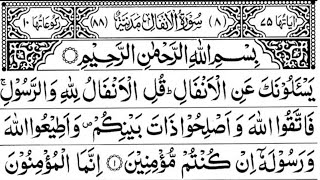 اٰیَاتُهَا ۷۵ (۸) سُوْرَةُ الْاَنْفَالِ مَدَنِیَّةٌ (۸۸) رُكُوْعَاتُهَا ۱۰
بِسْمِ اللّٰهِ الرَّحْمٰنِ الرَّحِیْمِ
یَسْـَٔلُوْنَكَ عَنِ الْاَنْفَالِ ؕ قُلِ الْاَنْفَالُ لِلّٰهِ وَ الرَّسُوْلِ ۚ
فَاتَّقُوا اللّٰهَ وَ اَصْلِحُوْا ذَاتَ بَیْنِكُمْ ۪ وَ اَطِیْعُوا اللّٰهَ
وَ رَسُوْلَهٗۤ اِنْ كُنْتُمْ مُّؤْمِنِیْنَ ۝۱ اِنَّمَا الْمُؤْمِنُوْنَ